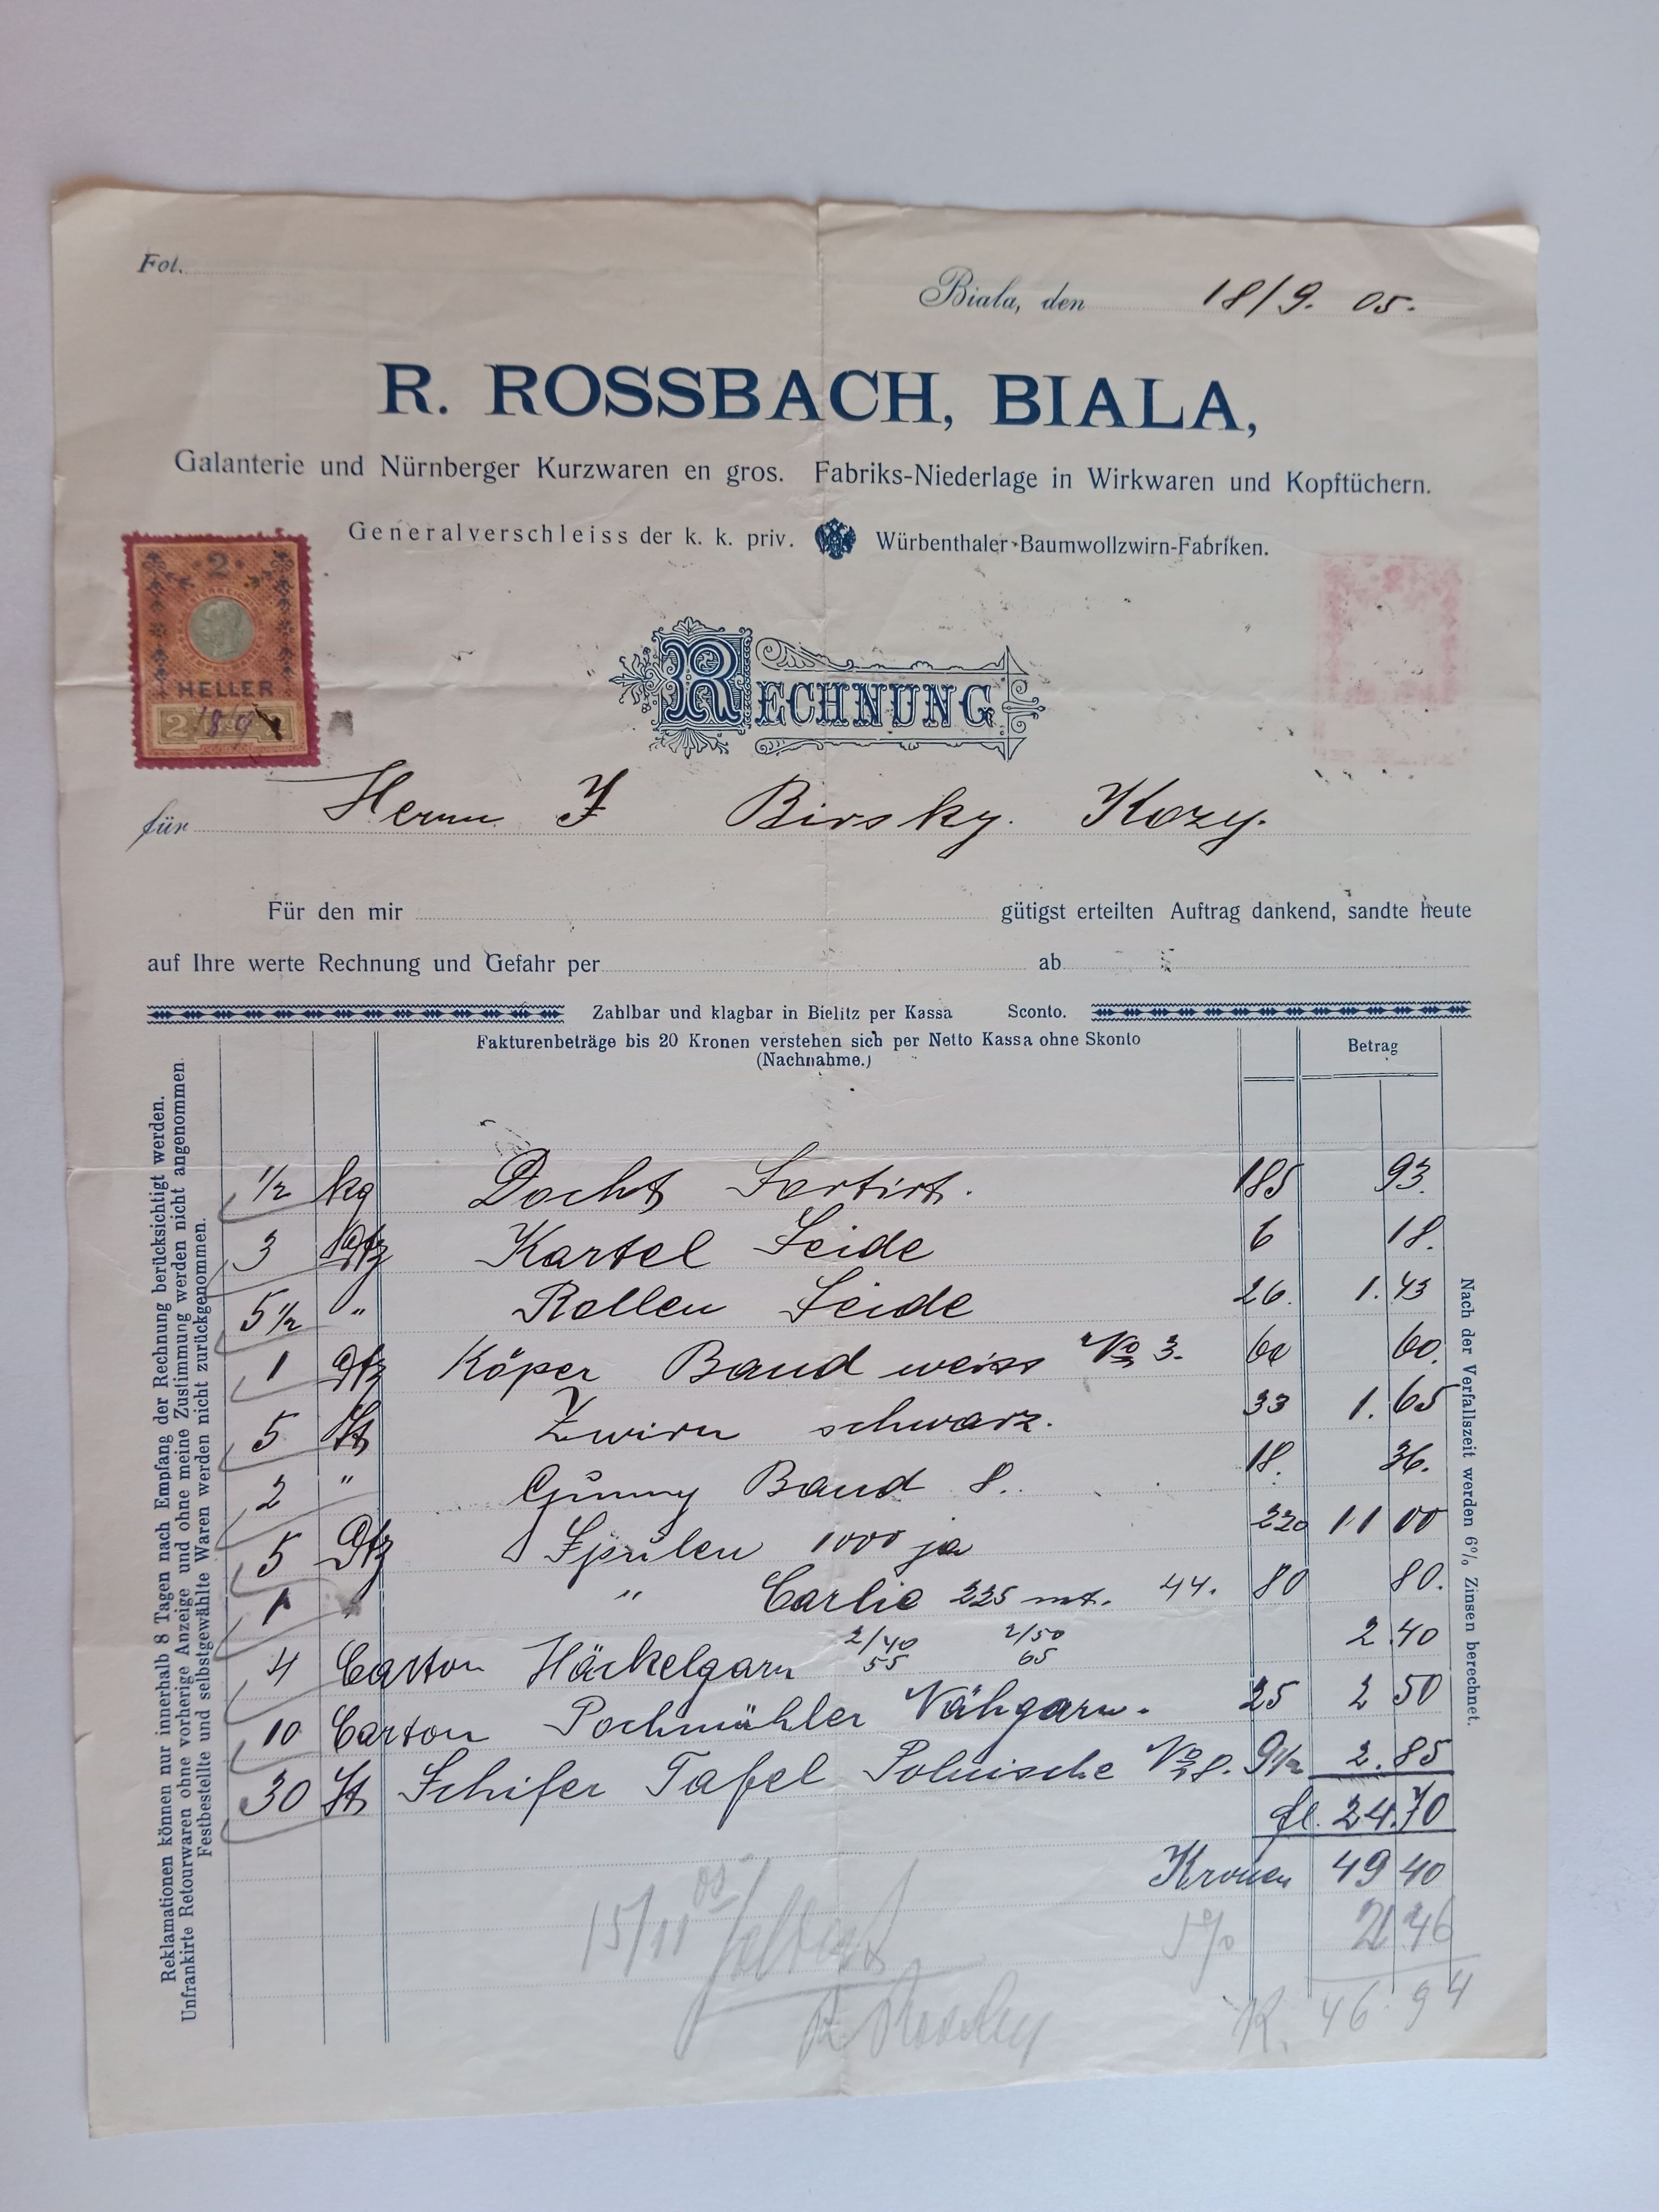 Fol.
Biala, den 18/9. 05.
R. ROSSBACH, BIALA,
Galanterie und Nürnberger Kurzwaren en gros. Fabriks-Niederlage in Wirkwaren und Kopftüchern.
Generalverschleiss der k. k. priv. Würbenthaler-Baumwollzwirn-Fabriken.
2
HELLER
2 18/9 2
RECHNUNG
für Herrn J Birsky. Kozy.
Für den mir gütigst erteilten Auftrag dankend, sandte heute
auf Ihre werte Rechnung und Gefahr per ab
Zahlbar und klagbar in Bielitz per Kassa Sconto.
Fakturenbeträge bis 20 Kronen verstehen sich per Netto Kassa ohne Skonto
(Nachnahme.)
Betrag
1/2 kg Docht Sortirt. 185 93.
3 Dtz Kartel Seide 6 18.
5 1/2 " Rollen Seide 26. 1.43
1 Dtz Köper Band weiss No 3. 60 60.
5 St Zwirn schwarz. 33 1.65
2 " Gummy Band 8. 18. 36.
5 Dtz Spulen 1000 ja 220 11 00
1 " " 225 mt. 44. 80 80.
4 Carton Häckelgarn 2/40 55 2/50 65 2.40
10 Carton Pochmühler Nähgarn. 25 2 50
30 St Schifer Tafel Polnische No 8. 9 1/2 2.85
fl. 24.70
Kronen 49 40
5% 2 46
K. 46.94
15/11 05
R Rossbach
Reklamationen können nur innerhalb 8 Tagen nach Empfang der Rechnung berücksichtigt werden.
Unfrankirte Retourwaren ohne vorherige Anzeige und ohne meine Zustimmung werden nicht angenommen
Festbestellte und selbstgewählte Waren werden nicht zurückgenommen.
Nach der Verfallszeit werden 6% Zinsen berechnet.